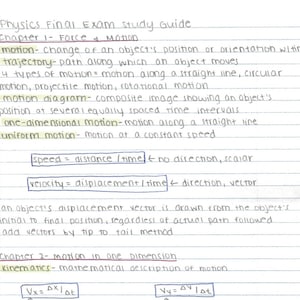 Physics Final Exam Study Guide
Chapter 1- Force & Motion
motion- change of an object's position or orientation with
trajectory- path along which an object moves
4 types of motion= motion along a straight line, circular
motion, projectile motion, rotational motion
motion diagram- composite image showing an object's
position at several equally spaced time intervals
one-dimensional motion- motion along a straight line
uniform motion- motion at a constant speed
speed = distance/time ← no direction, scalar
velocity = displacement/time ← direction, vector
an object's displacement vector is drawn from the object's
initial to final position, regardless of actual path followed
add vectors by tip to tail method
Chapter 2- motion in one dimension
kinematics- mathematical description of motion
Vx = Δx/Δt Vy = Δy/Δt